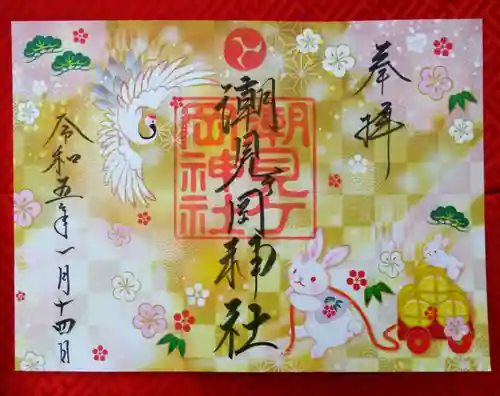 奉拝
潮見ケ岡神社
潮見ケ岡神社
令和五年一月十四日